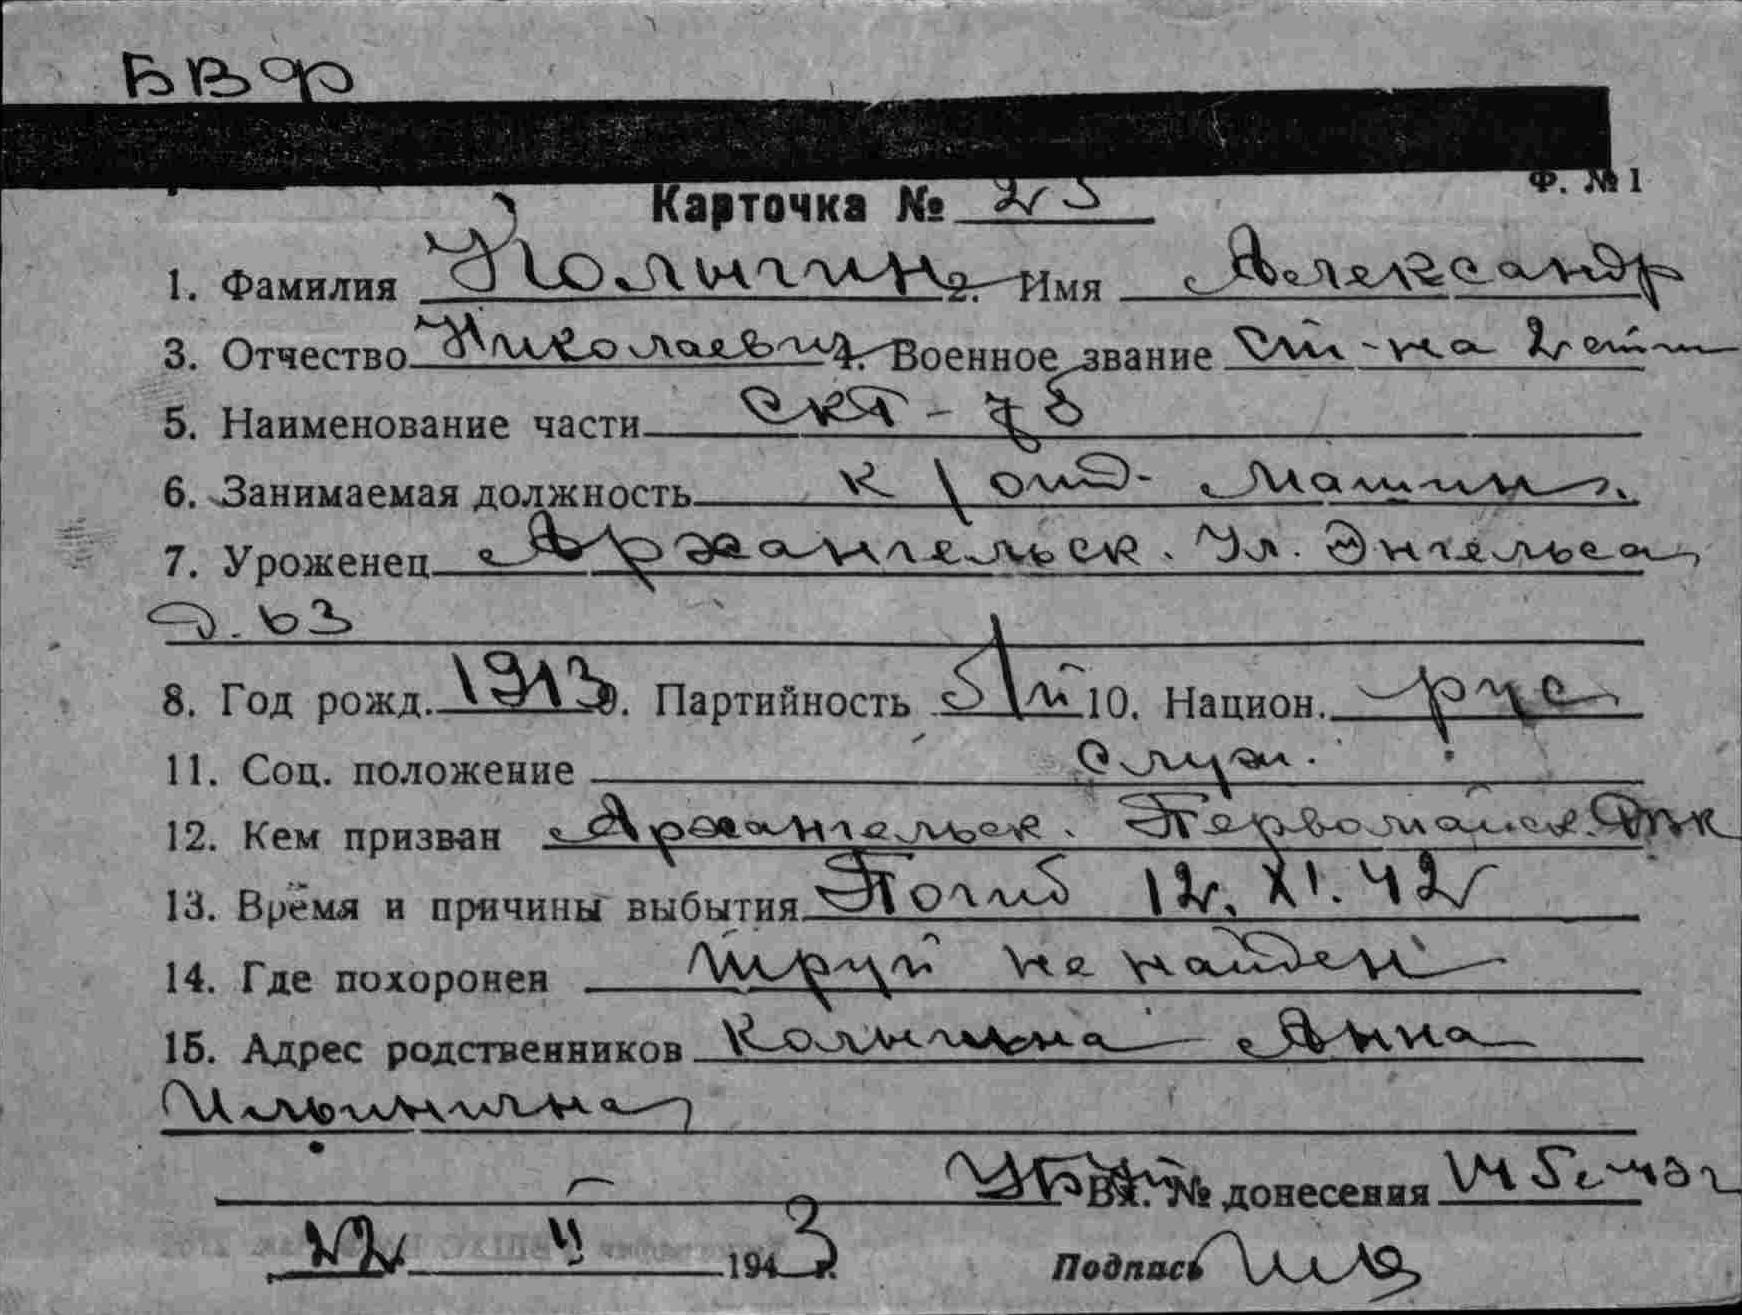 БВФ
Ф. № 1
Карточка № 23
1. Фамилия Колыгин 2. Имя Александр
3. Отчество Николаевич 4. Военное звание ст-на 2 ст
5. Наименование части СКР-78
6. Занимаемая должность к/отд. машин.
7. Уроженец Архангельск. Ул. Энгельса
д. 63
8. Год рожд. 1913 9. Партийность б/п 10. Национ. рус
11. Соц. положение служ.
12. Кем призван Архангельск. Первомайск. РВК
13. Время и причины выбытия Погиб 12.XI.42
14. Где похоронен труп не найден
15. Адрес родственников Колыгина Анна
Ильинична
Вх. № донесения
22 II 1943 г. Подпись